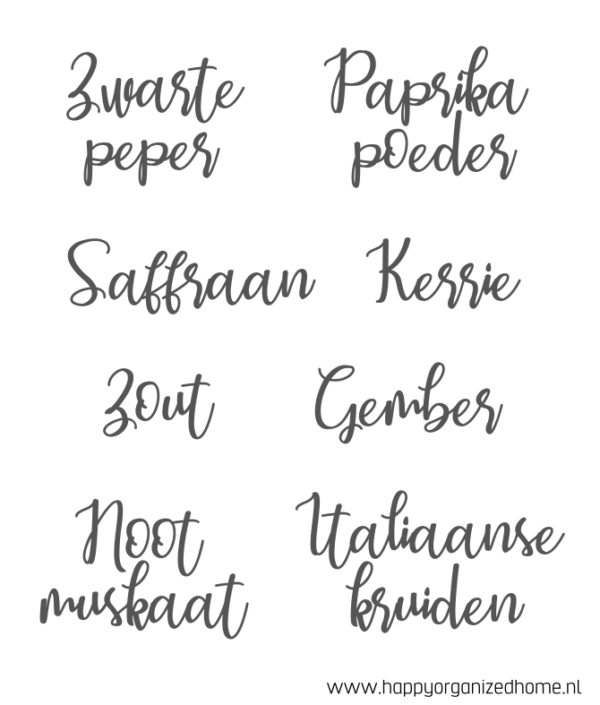 Zwarte
peper
Paprika
poeder
Saffraan
Kerrie
Zout
Gember
Noot
muskaat
Italiaanse
kruiden
www.happyorganizedhome.nl